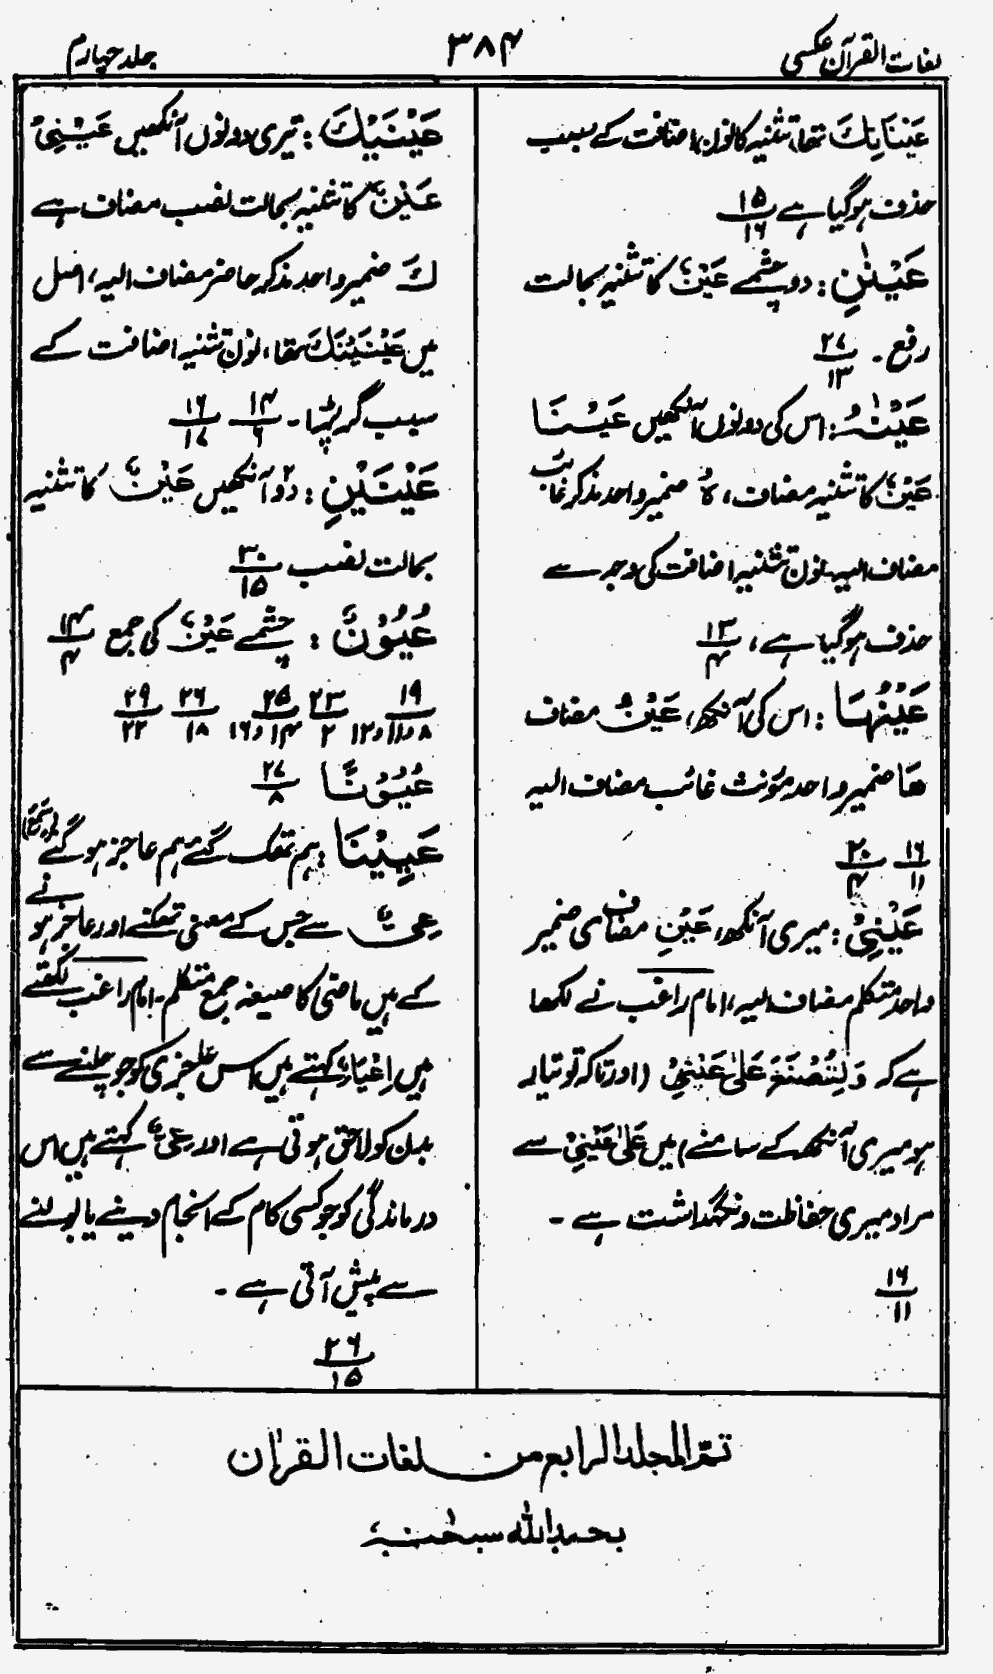 لغات القرآن عکسی
۳۸۴
جلد چہارم
عَيْنَانِكَ تھا، تثنیہ کا نون اضافت کے سبب
حذف ہو گیا ہے ۱۵/۱۶
عَيْنٰنِ : دو چشمے عَيْنٌ کا تثنیہ بحالت
رفع ۔ ۲۷/۱۳
عَيْنٰهُ : اس کی دونوں آنکھیں عَيْنَا
عَيْنٌ کا تثنیہ مضاف، هُ ضمیر واحد مذکر غائب
مضاف الیہ نون تثنیہ اضافت کی وجہ سے
حذف ہو گیا ہے، ۱۳/۴
عَيْنُهَا : اس کی آنکھ، عَيْنُ مضاف
هَا ضمیر واحد مؤنث غائب مضاف الیہ
۱۶/۱۱ ۲۰/۴
عَيْنِيْ : میری آنکھ، عَيْنِ مضاف ی ضمیر
واحد متکلم مضاف الیہ، امام راغب نے لکھا
ہے کہ وَلِتُصْنَعَ عَلٰى عَيْنِيْ (اور تاکہ تو تیار
ہو میری آنکھ کے سامنے) میں عَلٰى عَيْنِيْ سے
مراد میری حفاظت و نگہداشت ہے ۔
۱۶/۱۱
عَيْنَيْكَ : تیری دونوں آنکھیں عَيْنَيْ
عَيْنٌ کا تثنیہ بحالت نصب مضاف ہے
كَ ضمیر واحد مذکر حاضر مضاف الیہ، اصل
میں عَيْنَيْنِكَ تھا، نون تثنیہ اضافت کے
سبب گر پڑا ۔ ۱۴/۶ ۱۶/۱۷
عَيْنَيْنِ : دو آنکھیں عَيْنٌ کا تثنیہ
بحالت نصب ۳۰/۱۵
عُيُوْنٌ : چشمے عَيْنٌ کی جمع ۱۴/۴
۱۹/۸ و ۱۱ و ۱۲ ۲۳/۲ ۲۵/۱۴ و ۱۶ ۲۶/۱۸ ۲۹/۲۲
عُيُوْنًا ۲۷/۸
عَيِيْنَا : ہم تھک گئے ہم عاجز ہو گئے (سَمِعَ)
عِيٌّ سے جس کے معنی تھکنے اور عاجز ہونے
کے ہیں ماضی کا صیغہ جمع متکلم ۔ امام راغب لکھتے
ہیں اِعْيَاءٌ کہتے ہیں اس عاجزی کو جو چلنے سے
بدن کو لاحق ہوتی ہے اور عِيٌّ کہتے ہیں اس
درماندگی کو جو کسی کام کے انجام دینے یا بولنے
سے پیش آتی ہے ۔
۲۶/۱۵
تمّ المجلد الرابع من لغات القرآن
بحمد الله سبحٰنه